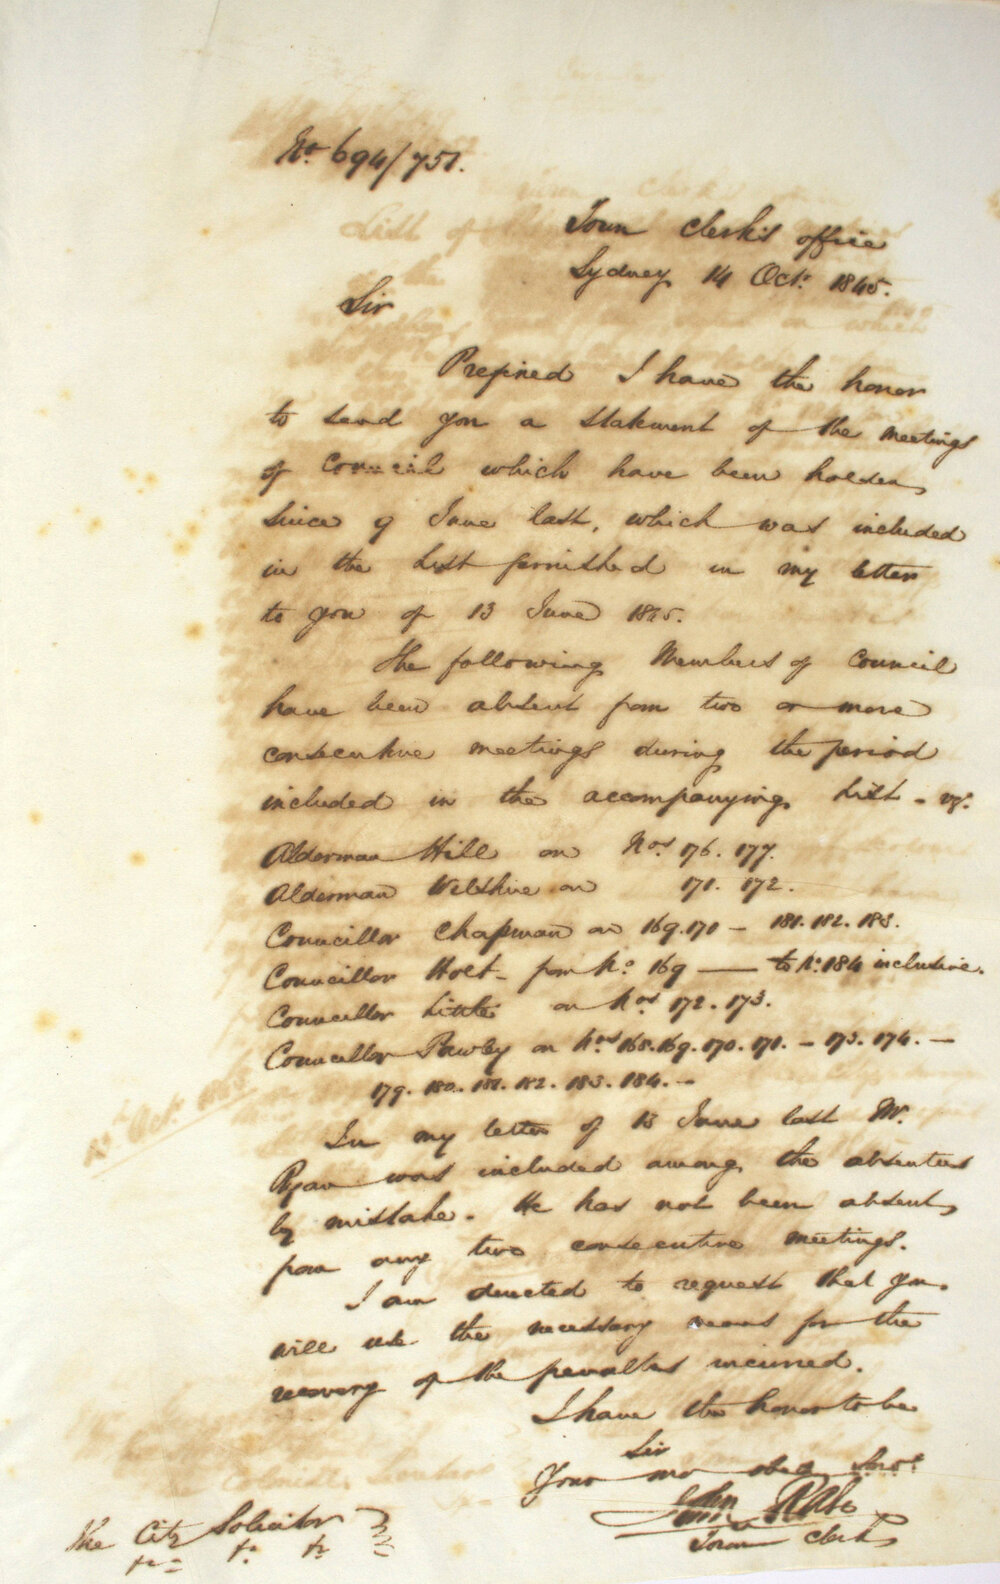 No. 694/751.
Town Clerk's office
Sydney 14 Octr. 1845.
Sir
Prefixed I have the honor
to send you a statement of the meetings
of Council which have been holden
since 9 June last, which was included
in the List furnished in my letter
to you of 13 June 1845.
The following Members of Council
have been absent from two or more
consecutive meetings during the period
included in the accompanying List - vizt.
Alderman Hill on Nos 176. 177.
Alderman Wilshire on 171. 172.
Councillor Chapman on 169. 170 - 181. 182. 183.
Councillor Holt - from No. 169 — to No. 184 inclusive.
Councillor Little on Nos 172. 173.
Councillor Pawley on Nos 168. 169. 170. 171. - 173. 174. -
179. 180. 181. 182. 183. 184. -
In my letter of 13 June last Mr.
Ryan was included among the absentees
by mistake. He has not been absent
from any two consecutive meetings.
I am directed to request that you
will use the necessary means for the
recovery of the penalties incurred.
I have the honor to be
Sir
Your mo obed Servt
John Rae
Town Clerk
The City Solicitor